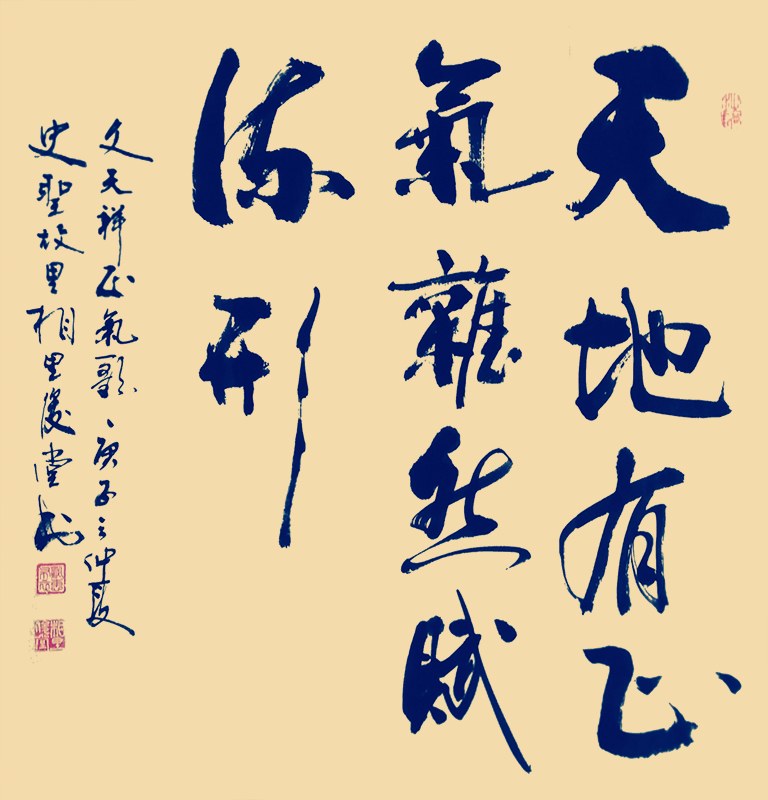 天地有正
氣雜然賦
流形
文天祥正氣歌、庚子之仲夏
史聖故里相里俊堂书